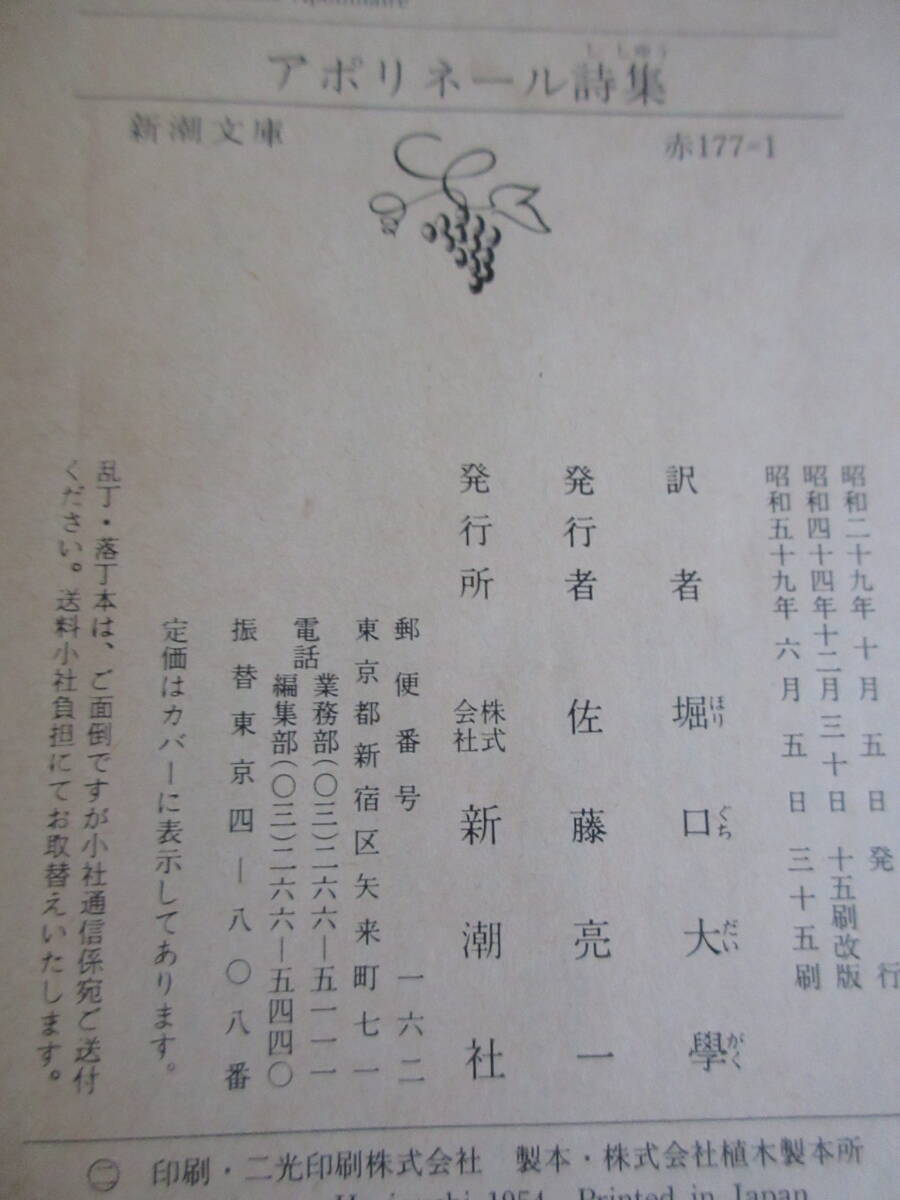 Apollinaire
アポリネール詩集
ししゅう
新潮文庫
赤177=1
昭和二十九年十月五日発行
昭和四十四年十二月三十日十五刷改版
昭和五十九年六月五日三十五刷
訳者 堀口大學
ほりぐちだいがく
発行者 佐藤亮一
発行所 株式会社 新潮社
郵便番号 一六二
東京都新宿区矢来町七一
電話 業務部(〇三)二六六―五一一一
編集部(〇三)二六六―五四四〇
振替東京四―八〇八番
定価はカバーに表示してあります。
乱丁・落丁本は、ご面倒ですが小社通信係宛ご送付
ください。送料小社負担にてお取替えいたします。
㊁ 印刷・二光印刷株式会社 製本・株式会社植木製本所
Horiguchi 1954 Printed in Japan